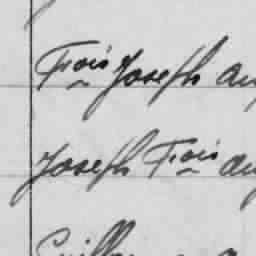 Fçois Joseph au
Joseph Fçois au
Guill